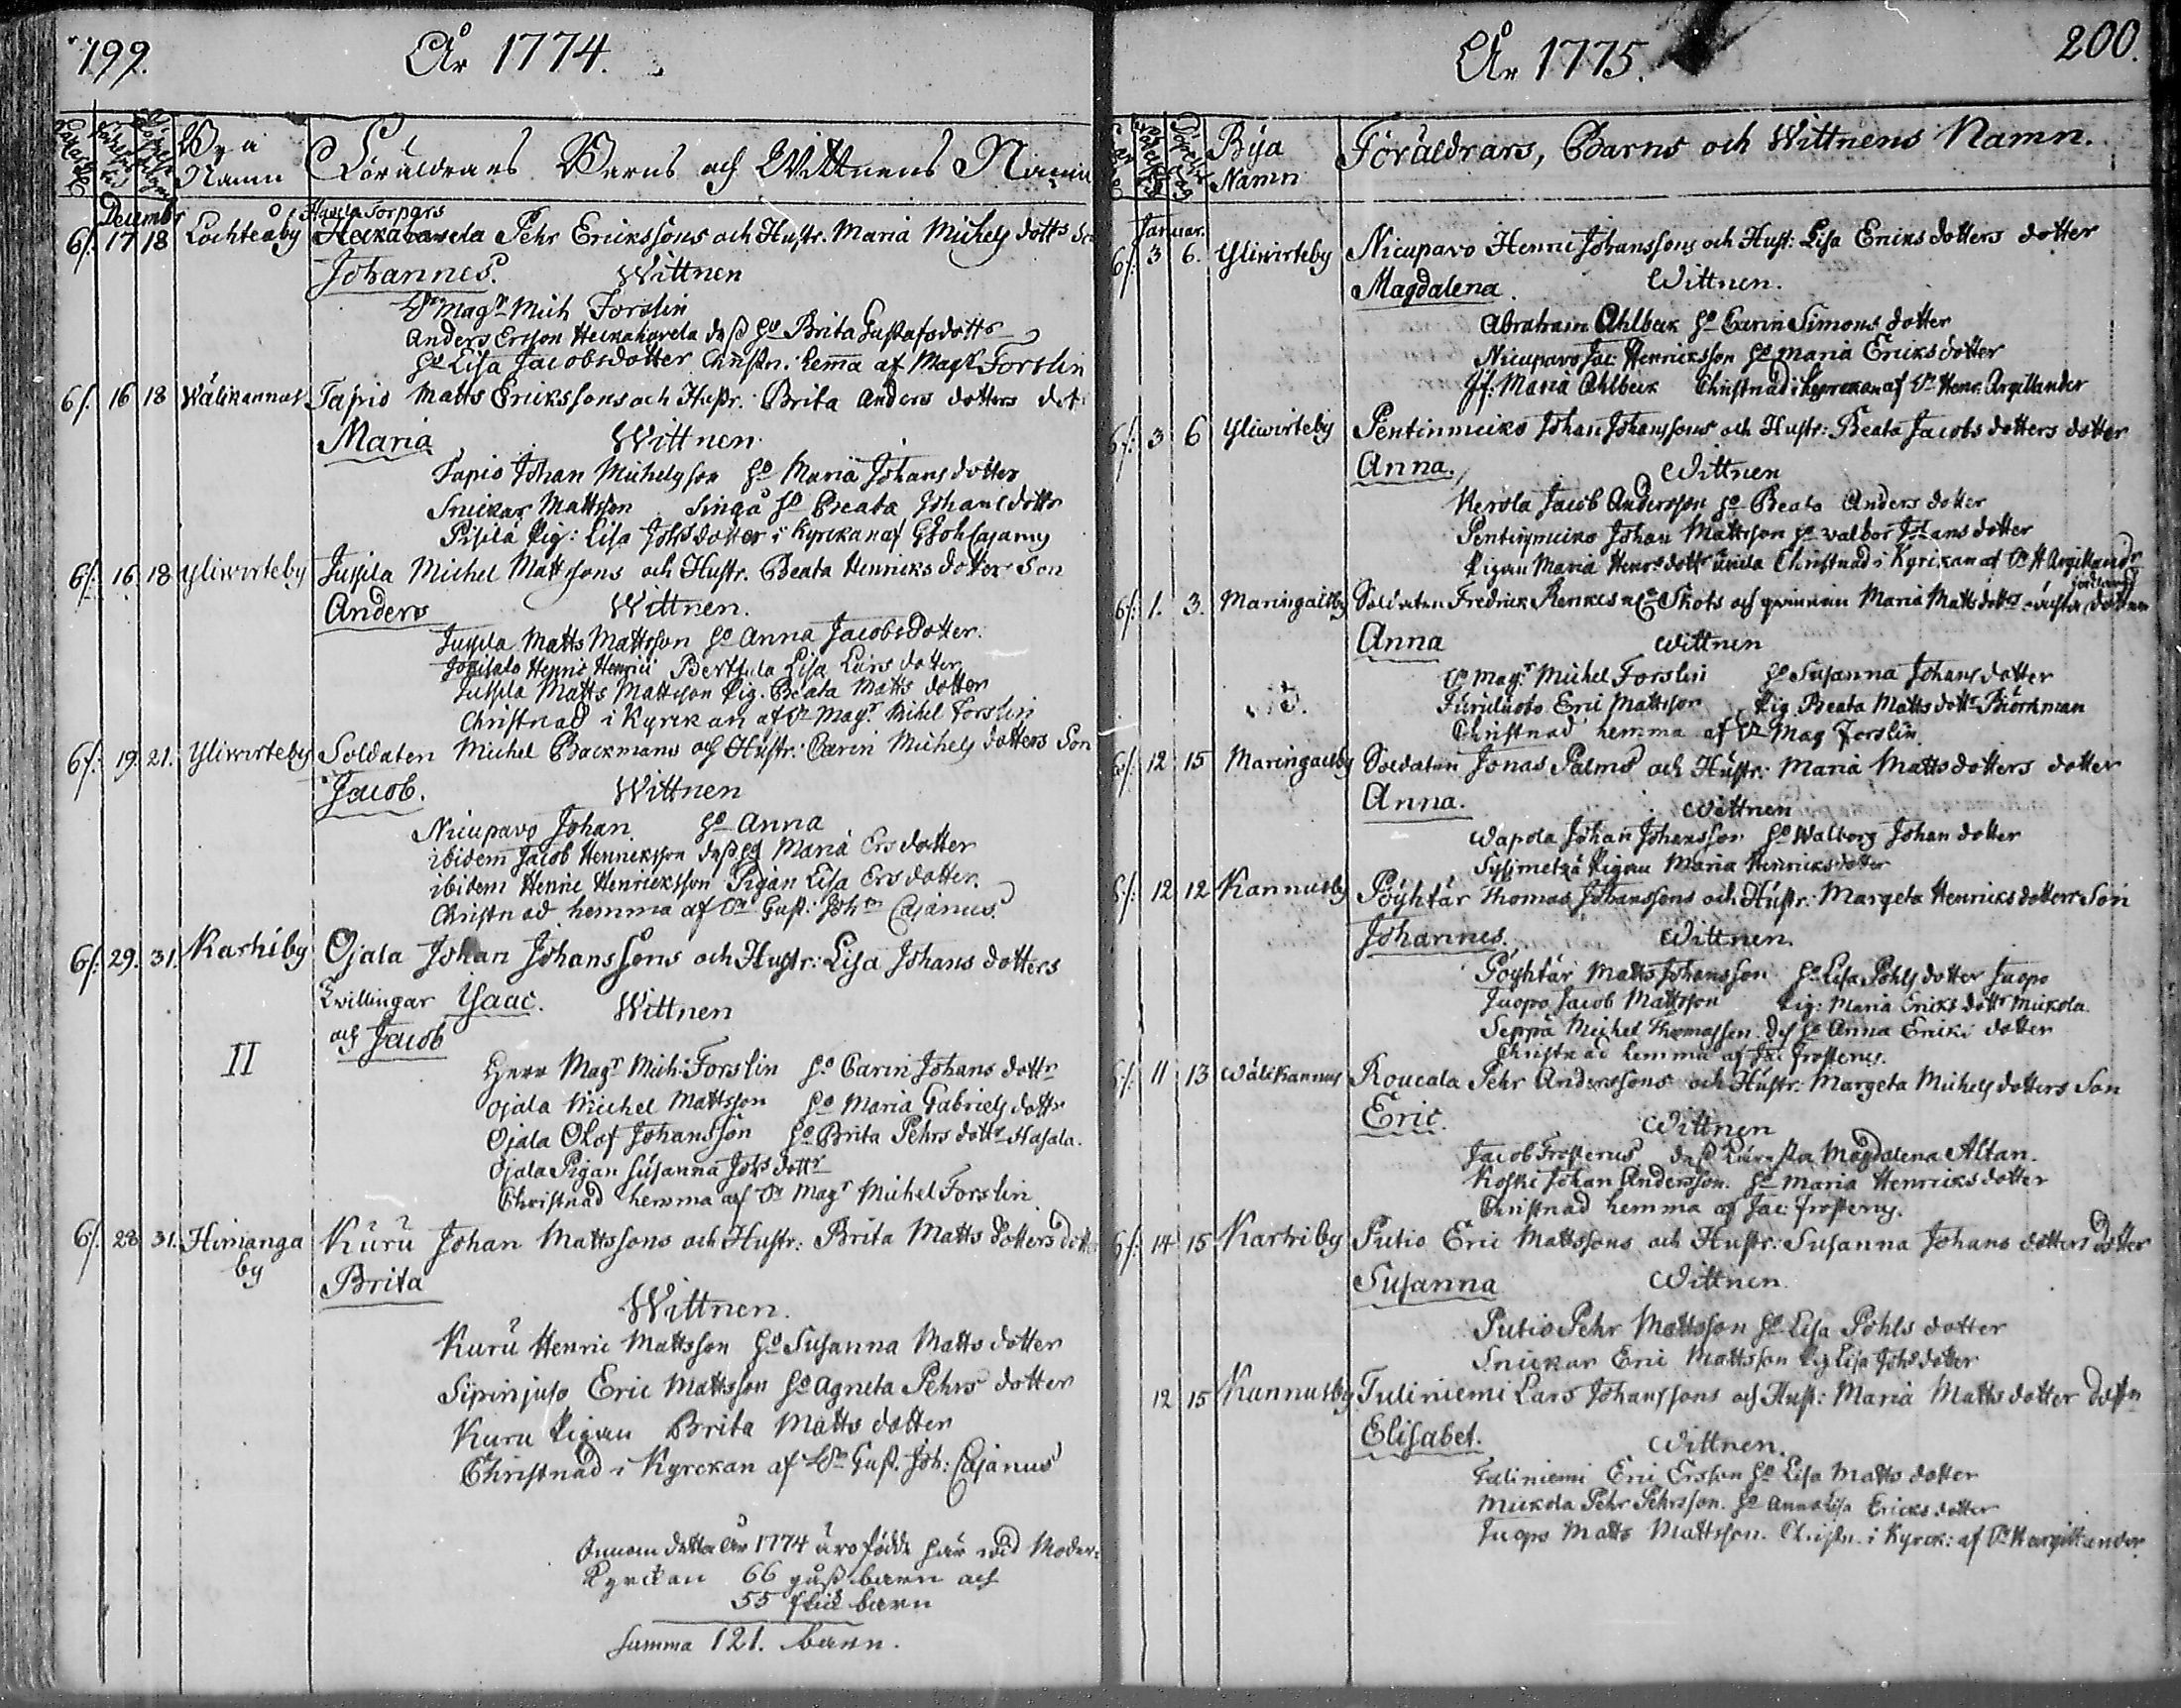 199.
År 1774.
Bya
Namn
Föräldrars Barns och Wittnens Namn
Decembr
Havela torpars
6/: 17 18 Lochteåby Pehr Erickssons och Hustr. Maria Michels dotts
Johannes. Wittnen
Magr Mich Forslin
Anders Ersson Heckahavela dess ho Brita Gustafsdottr
ho Lisa Jacobsdotter Christn: hema af Magr Forslin
6/. 16 18 Wälikannus Tapio Matts Erickssons och Hustr. Brita Anders dotters
Maria Wittnen
Tapio Johan Michelsson ho Maria Johans dotter
Snickar Mattsson ho Beata Johans dottr
Pisilä Pig: Lisa Johsdotter i Kyrckan af
6/: 16 18 Yliwirteby Jussila Michel Mattssons och Hustr. Beata Henricks dotter Son
Anders Wittnen.
Jussila Matts Mattsson ho Anna Jacobsdotter.
Henric Henrici Lisa Lars dotter
Jussila Matts Mattsson Pig. Beata Matts dotter
Christnad i Kyrckan af Hr Magr. Michel Forslin
6/: 19. 21. Yliwirteby Soldaten Michel Backmans och Hustr. Carin Michels dotters Son
Jacob. Wittnen
Nicupavo Johan ho Anna
ibidem Jacob Henricksson dess ho Maria Ersdotter
ibidem Henric Henricksson Pigan Lisa Ersdotter.
Christnad hemma af Hr Gust: Joh Cajanus.
6/: 29. 31. Karhiby Ojala Johan Johanssons och Hustr: Lisa Johans dotters
Twillingar Isaac. Wittnen
och Jacob
II
Herr Magr Mich: Forslin ho Carin Johans dottr
Ojala Michel Mattsson ho Maria Gabriels dottr
Ojala Olof Johansson ho Brita Pehrs dottr Hasala.
Ojala Pigan Susanna Johs dottr
Christnad hemma af Hr Magr Michel Forslin
6/. 28 31. Himanga Kuru Johan Mattssons och Hustr: Brita Matts dotters dotter
by
Brita
Wittnen.
Kuru Henric Mattsson ho Susanna Matts dotter
Eric Mattsson ho Agneta Pehrs dotter
Kuru Pigan Brita Matts dotter
Christnad i Kyrckan af Hr Gust. Joh: Cajanus
Innom detta År 1774 äro födde här wid Moder-
Kyrckan 66 gåsse barn och
55 flick barn
Summa 121. barn.
200.
År 1775.
Bya
Namn
Föräldrars, Barns och Wittnens Namn.
Januar.
6/: 3 6. Yliwirteby Nicupavo Henric Johanssons och Hust: Lisa Ericks dotters dotter
Magdalena. Wittnen.
Abraham Ahlbeck ho Carin Simons dotter
Nicupavo Jac: Henricksson ho Maria Ericks dotter
Jf: Maria Ahlbeck Christnad i Kyrckan af Hr Henr. Argillander
6/: 3 6 Yliwirteby Pentinmicko Johan Johanssons och Hustr: Beata Jacobs dotters dotter
Anna. Wittnen
Herola Jacob Andersson ho Beata Anders dotter
Pentinmicko Johan Mattsson ho Walbor Johans dotter
Pigan Maria Henrs dottr Christnad i Kyrckan af Hr H Argillandr
6/: 1. 3. Maringaisby Soldaten Fredric Skots och qvinnan Maria Matts dotts dotter
Anna Wittnen
Hr Magr Michel Forslin ho Susanna Johans dotter
Furuluoto Eric Mattsson Pig. Beata Matts dottr Biörkman
Christnad hemma af Hr Mag Forslin
6/: 12 15 Maringaisby Soldaten Jonas Palms och Hustr: Maria Mattsdotters dotter
Anna. Wittnen
Wapola Johan Johansson ho Walborg Johan dotter
Syssimetzä Pigan Maria Henricksdotter
6/: 12 12 Kannusby Pöyhtär Thomas Johanssons och Hustr. Margeta Henricks dotters Son
Johannes. Wittnen.
Pöyhtär Matts Johansson ho Lisa Pohls dotter Juopo
Juopo Jacob Mattsson Pig: Maria Ericks dottr Mickola.
Seppä Michel Thomasson des ho Anna Ericks dotter
Christnad hemma af Jac Frosterus.
6/: 11 13 Wälikannus Roucala Pehr Anderssons och Hustr: Margeta Michels dotters Son
Eric. Wittnen
Jacob Frosterus dess Käresta Magdalena Altan.
Koski Johan Andersson. ho Maria Henricks dotter
Christnad hemma af Jac: Frosterus.
6/: 14 15 Karhiby Putio Eric Mattssons och Hustr: Susanna Johans dotters dotter
Susanna Wittnen
Putio Pehr Mattsson ho Lisa Pohls dotter
Snickar Eric Mattsson Pig Lisa Johs dotter
12 15 Kannusby Tuliniemi Lars Johanssons och Hust: Maria Matts dotter dottr
Elisabet. Wittnen.
Tuliniemi Eric Ersson ho Lisa Matts dotter
Mickola Pehr Pehrsson. ho Anna Lisa Ericks dotter
Juopo Matts Mattsson. Christn. i Kyrck: af Hr H Argillander